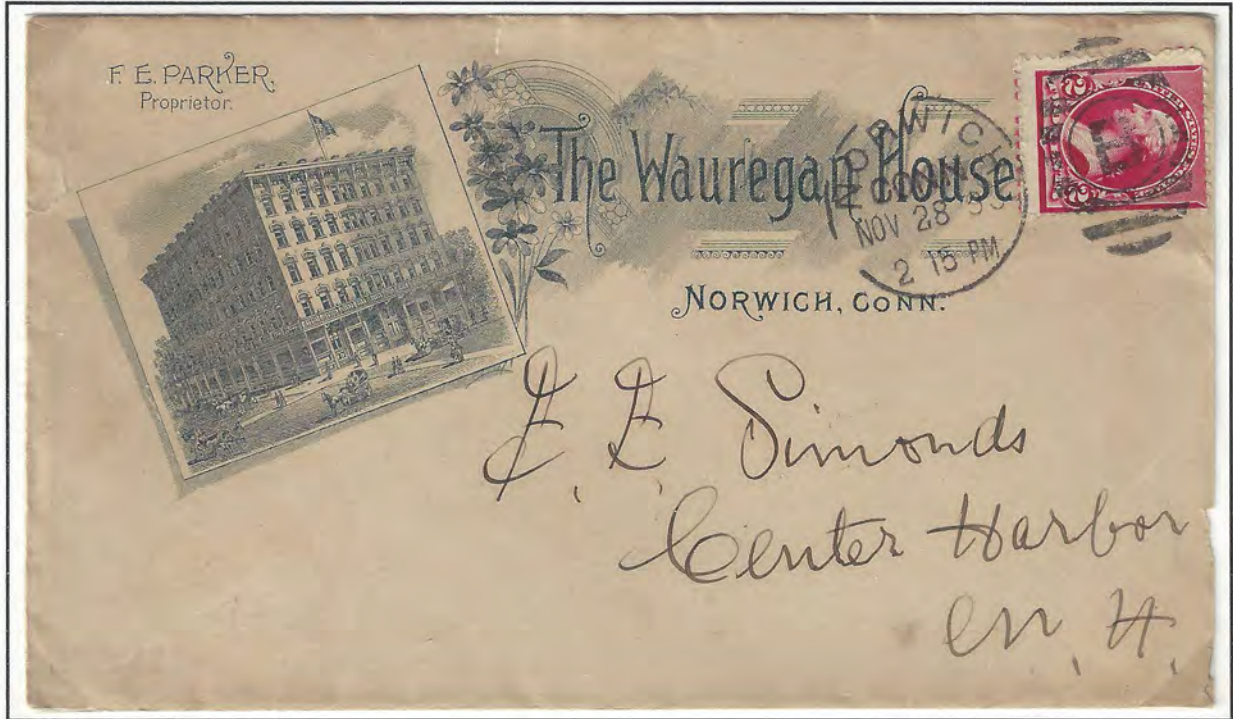 F. E. PARKER,
Proprietor.
The Wauregan House
NORWICH, CONN.
NORWICH
CONN.
NOV 28
2 15 PM
E. Simonds
Center Harbor
N. H.